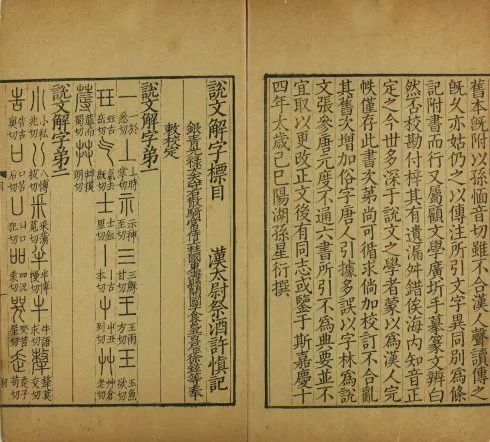 舊本旣附以孫愐音切雖不合漢人聲讀傳之
旣久亦姑仍之以傳注所引文字異同別爲條
記附書而行又屬顧文學廣圻手摹篆文辨白
然否校勘付梓其有遺漏舛錯俟海內知音正
定之今世多深于說文之學者蒙以爲漢人完
帙僅存此書次第尚可循求倘加校訂不合亂
其舊次增加俗字唐人引據多誤以字林爲說
文張參唐元度不通六書所引不爲典要並不
宜取以更改正文後有同志或鑒于斯嘉慶十
四年太歲己巳陽湖孫星衍撰
說文解字標目 漢太尉祭酒許愼記
銀青光祿大夫守右散騎常侍上柱國東海縣開國子食邑五百戶臣徐鉉等奉
敕校定
說文解字弟一
一於悉切 丄時掌切 示神至切 三穌甘切 王雨方切 玉魚欲切
玨古岳切 气去旣切 士鉏里切 丨古本切 屮丑列切 艸倉老切
蓐而蜀切 茻模朗切
說文解字弟二
小私兆切 八博拔切 釆蒲莧切 半博幔切 牛語求切 犛莫交切
告古奧切 口苦后切 凵口犯切 吅況袁切 哭苦屋切 走子苟切